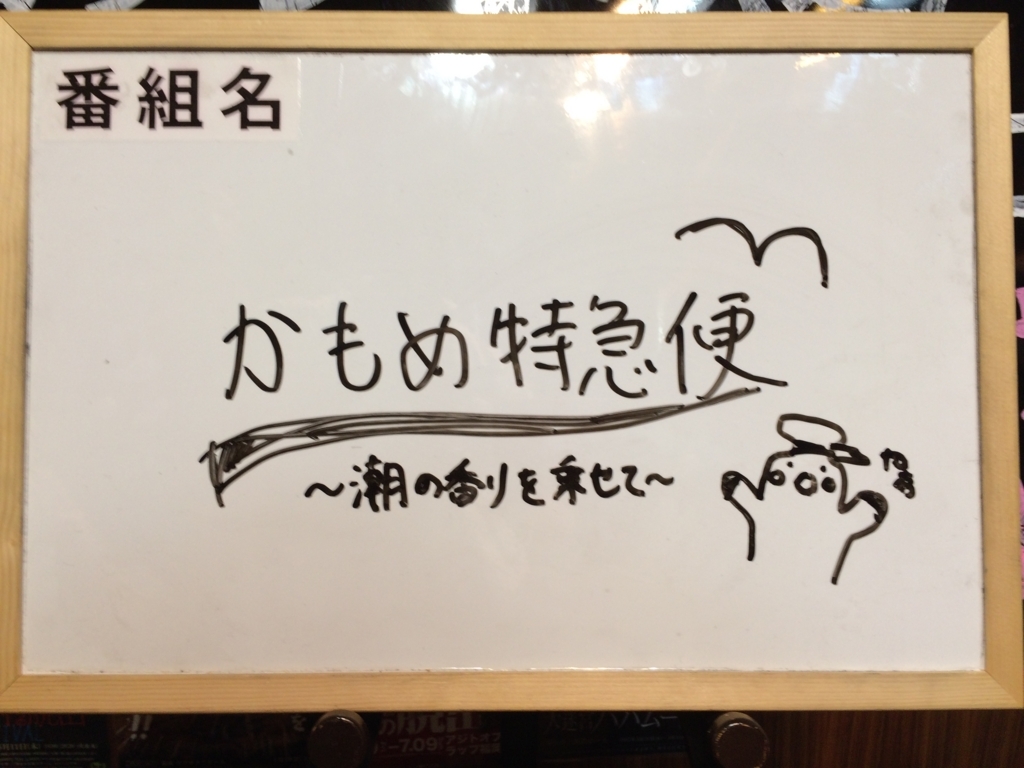 番組名
かもめ特急便
～潮の香りを乗せて～
!!
を
7.09